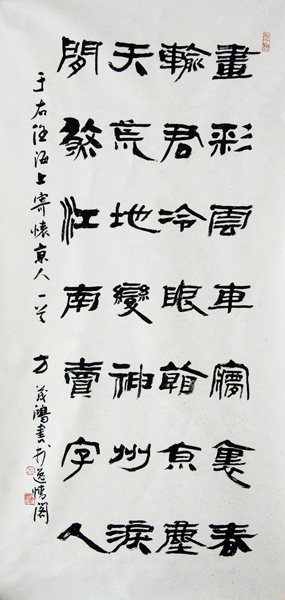 畫彩雲車夢裏春
輸君冷眼看京塵
天荒地變神州淚
閒煞江南賣字人
于右任海上寄懷京人一首 方茂鴻書於逸情閣